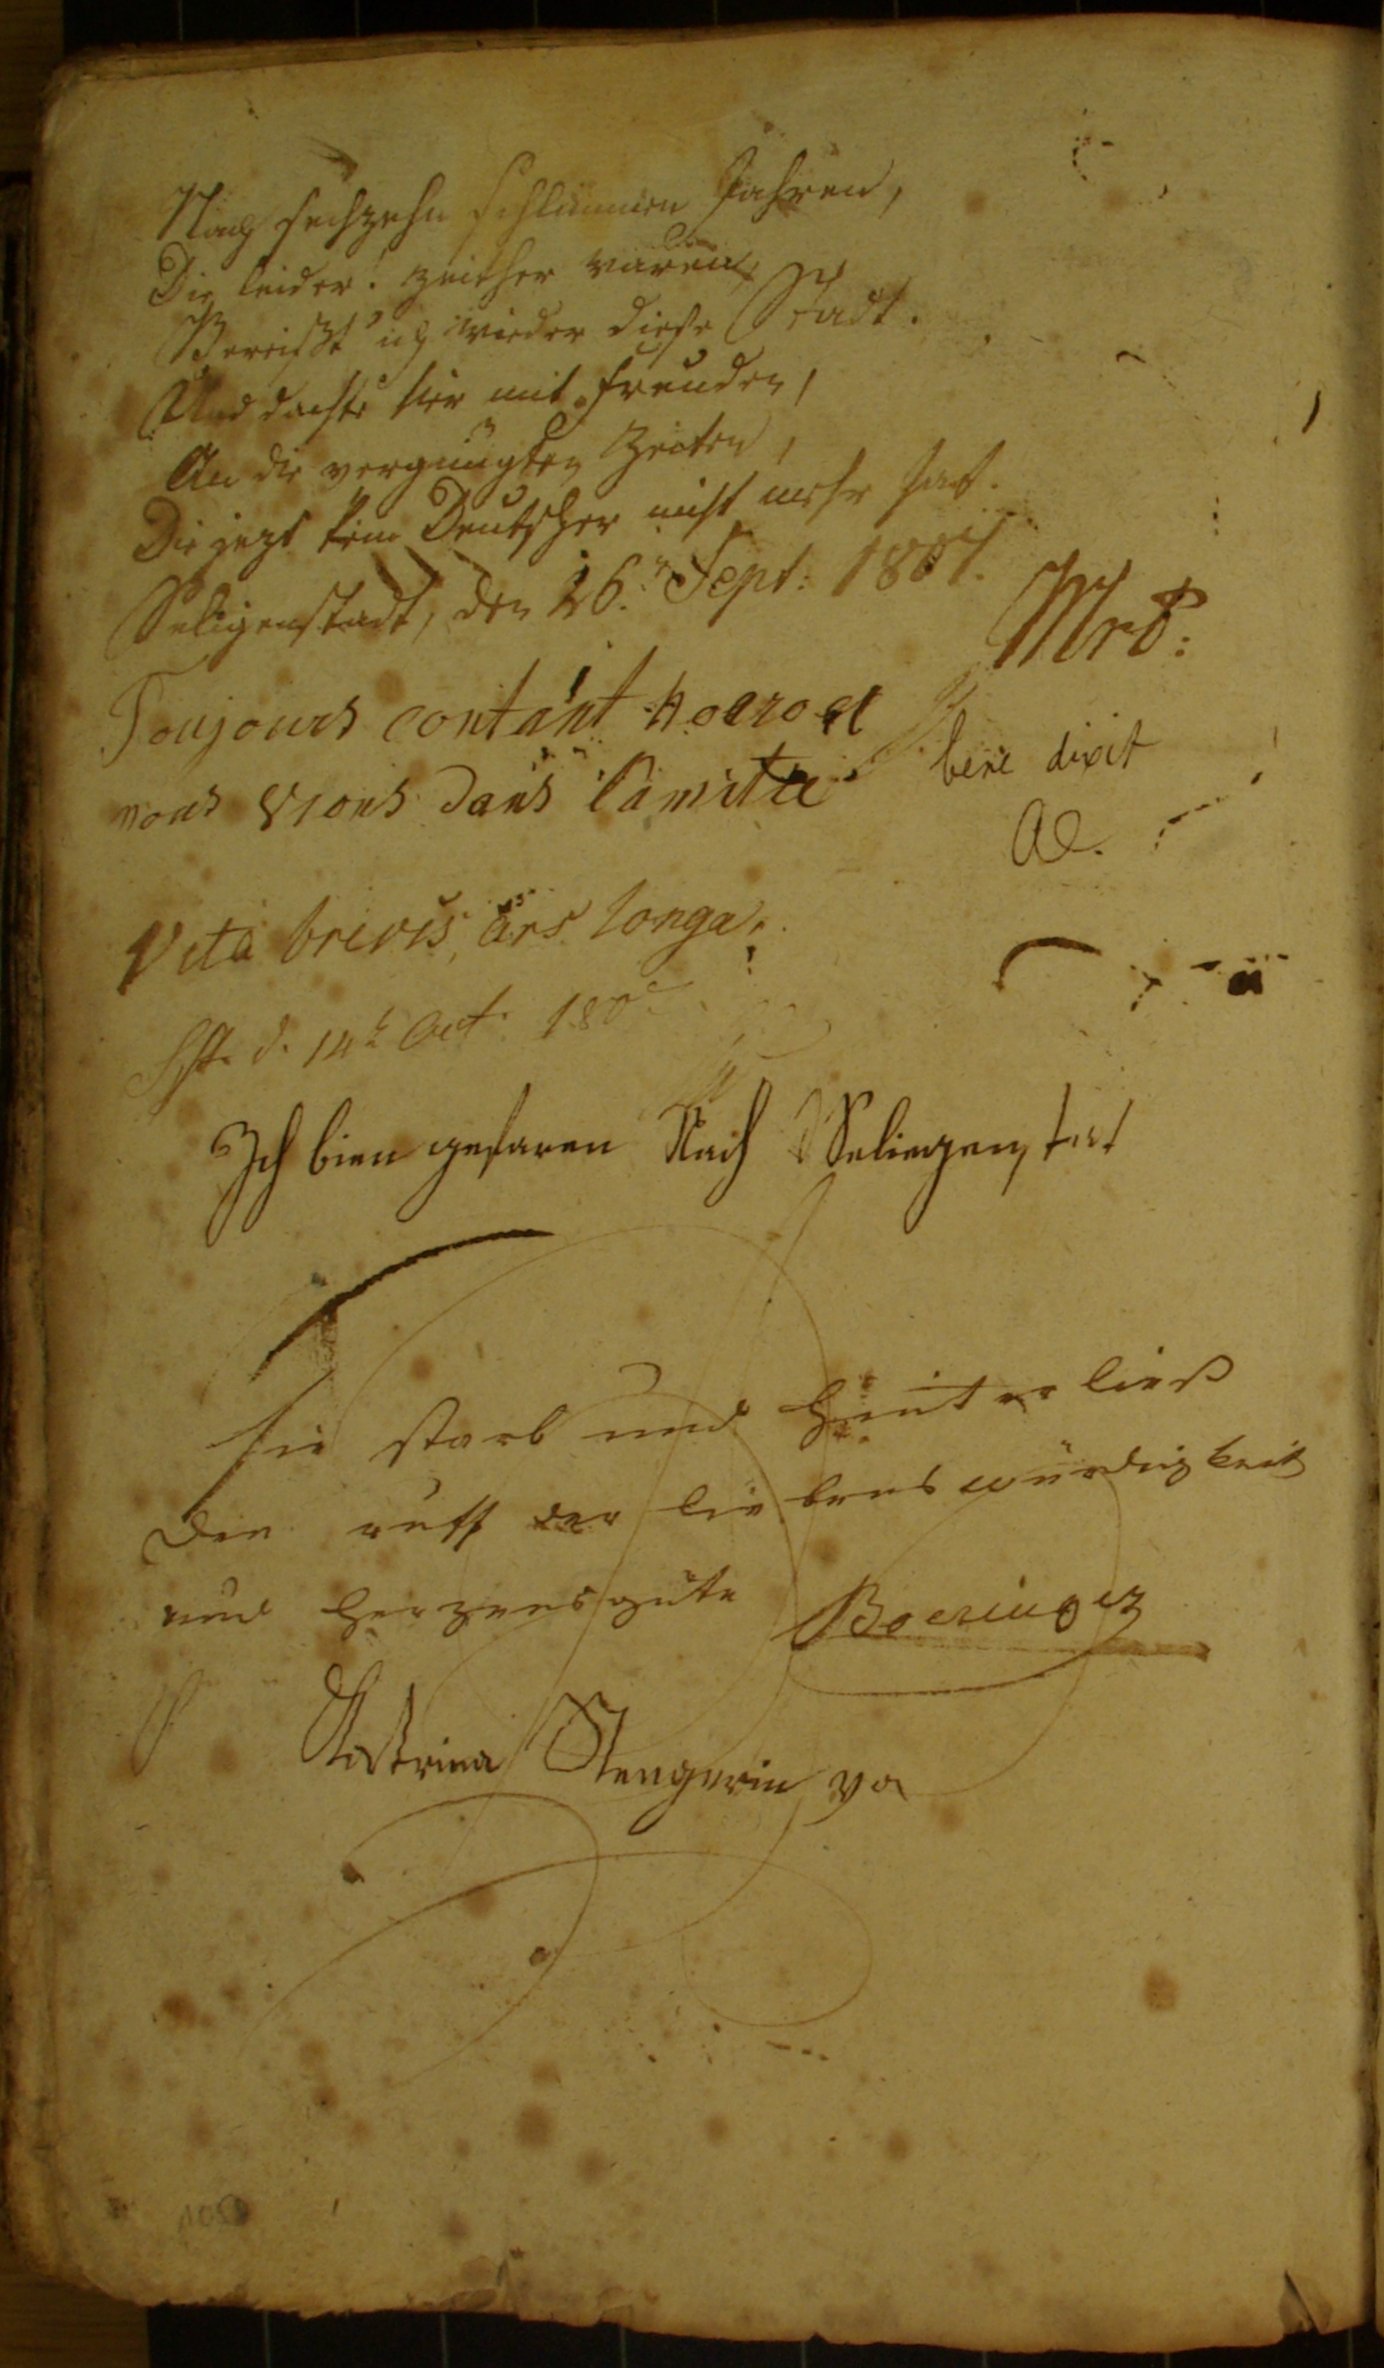 Nach sechzehn schlimmen Jahren,
Die leider! zeither waren,
Bereißt' ich wieder diese Stadt.
Und dachte hier mit Freuden,
An die vergnügten Zeiten,
Die jezt kein Deutscher nicht mehr hat.
Seligenstadt, den 26.n Sept: 1807.
Mrb:
Toujours contant
nous vions dans l'amitie
bene dixit
Vita brevis, ars longa.
d. 14t Oct. 180
Ich bien gefaren Nach Seliegenstat
sie starb und hinterließ
den ruff der liebenswürdigkeit
und herzensgüte Boeringer
Katrina Stengerin va